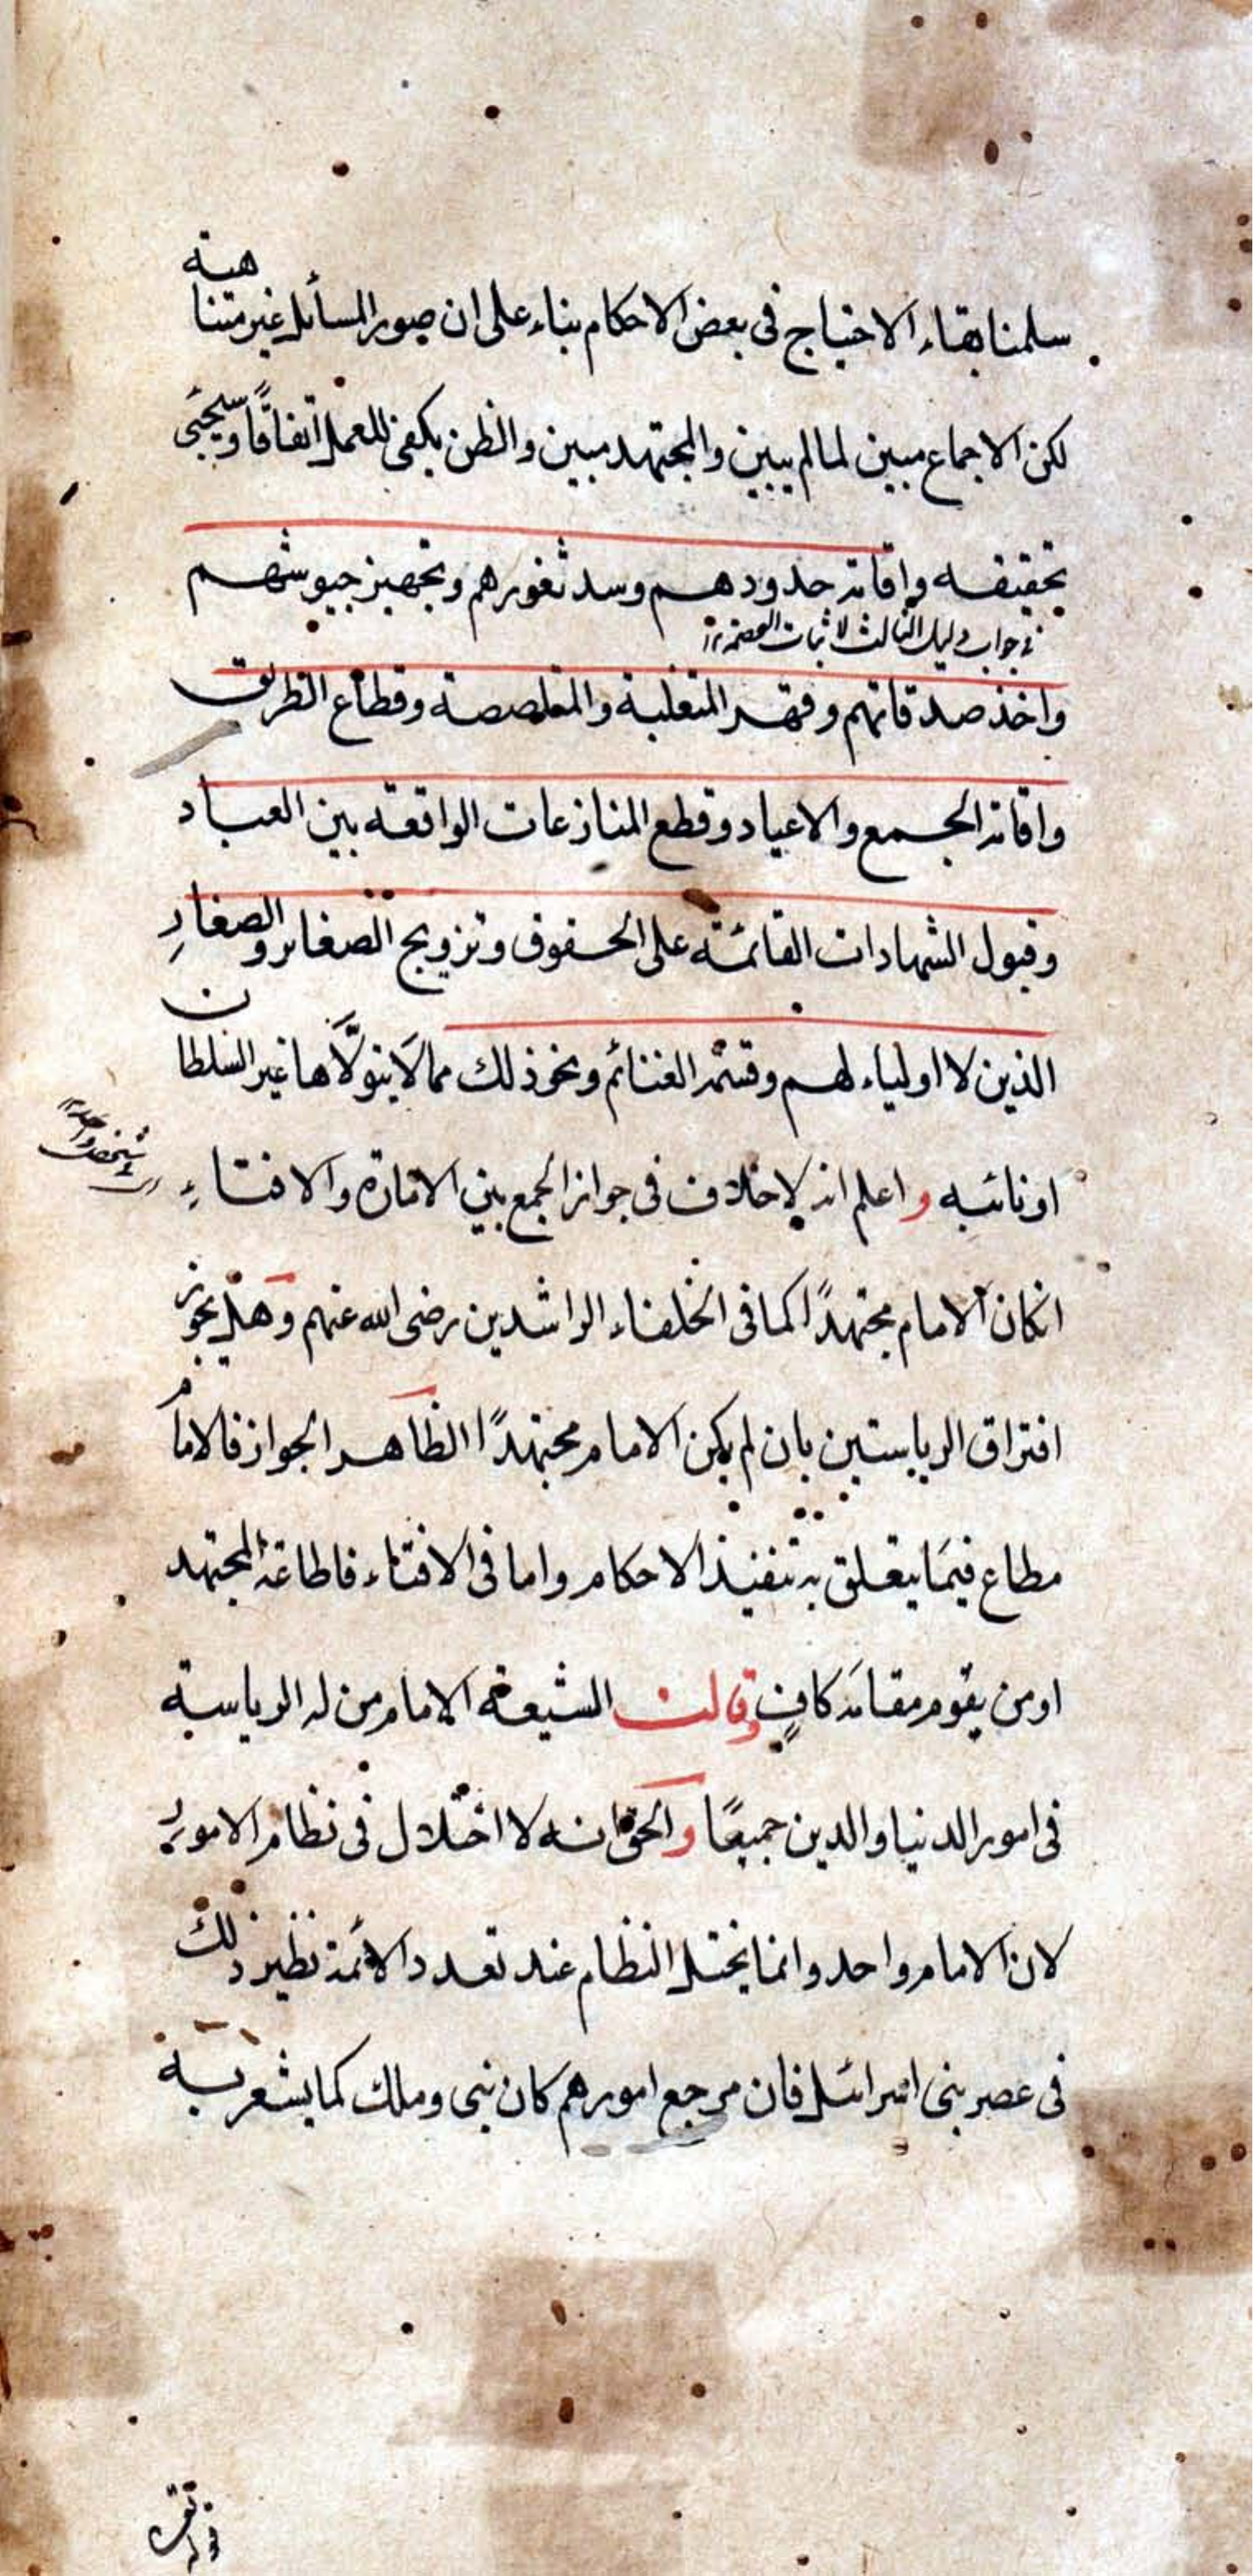 سلمنا بقاء الاحتياج فى بعض الاحكام بناء على ان صور المسائل غير متناهية
لكن الاجماع مبين لما لم يبين والمجتهد مبين والظن يكفى للعمل اتفاقًا وسيجئ
تحقيقه وإقامة حدودهم وسد ثغورهم وتجهيز جيوشهم
فى جواب دليل الثالث لاثبات العصمة
واخذ صدقاتهم وقهر المتغلبة والمتلصصة وقطاع الطريق
واقامة الجمع والاعياد وقطع المنازعات الواقعة بين العباد
وقبول الشهادات القائمة على الحقوق وتزويج الصغائر والصغارِ
الذين لا اولياء لهم وقسمة الغنائم ونحو ذلك مما لَا يتولَّاها غير السلطان
او نائبه و اعلم انه لا خلاف فى جواز الجمع بين الامارة والافتاءِ
فى شخص واحد
انكان الامام مجتهدًا كما فى الخلفاء الراشدين رضى الله عنهم وهل يجوز
افتراق الرياستين بان لم يكن الامام مجتهدًا الظاهر الجواز فالامام
مطاع فيمَا يتعلق به تنفيذ الاحكام واما فى الافتاء فاطاعة المجتهد
او من يقوم مقامَه كافٍ وقالت الشيعة الامام من له الرياسة
فى امور الدنيا والدين جميعًا و الحق انه لا اختلال فى نظام الامور
لان الامام واحد وانما يختل النظام عند تعدد الائمة نظير ذلك
فى عصر بنى اسرائيل فان مرجع امورهم كان نبى وملك كما يشعر به
قوله تع